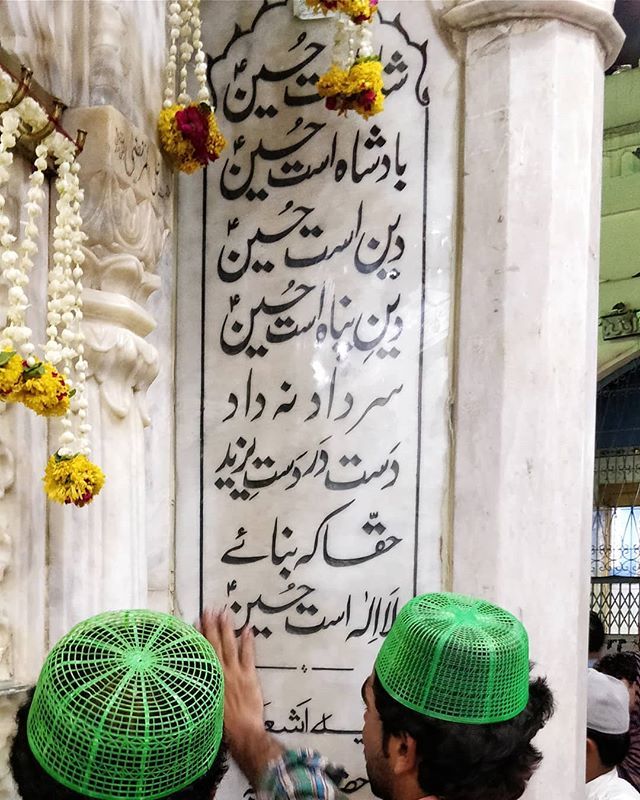 شاہ است حسینؑ
بادشاہ است حسینؑ
دین است حسینؑ
دینِ پناہ است حسینؑ
سر داد نہ داد
دَست دَر دَستِ یزید
حقّا کہ بنائے
لا اِلٰہ است حسینؑ